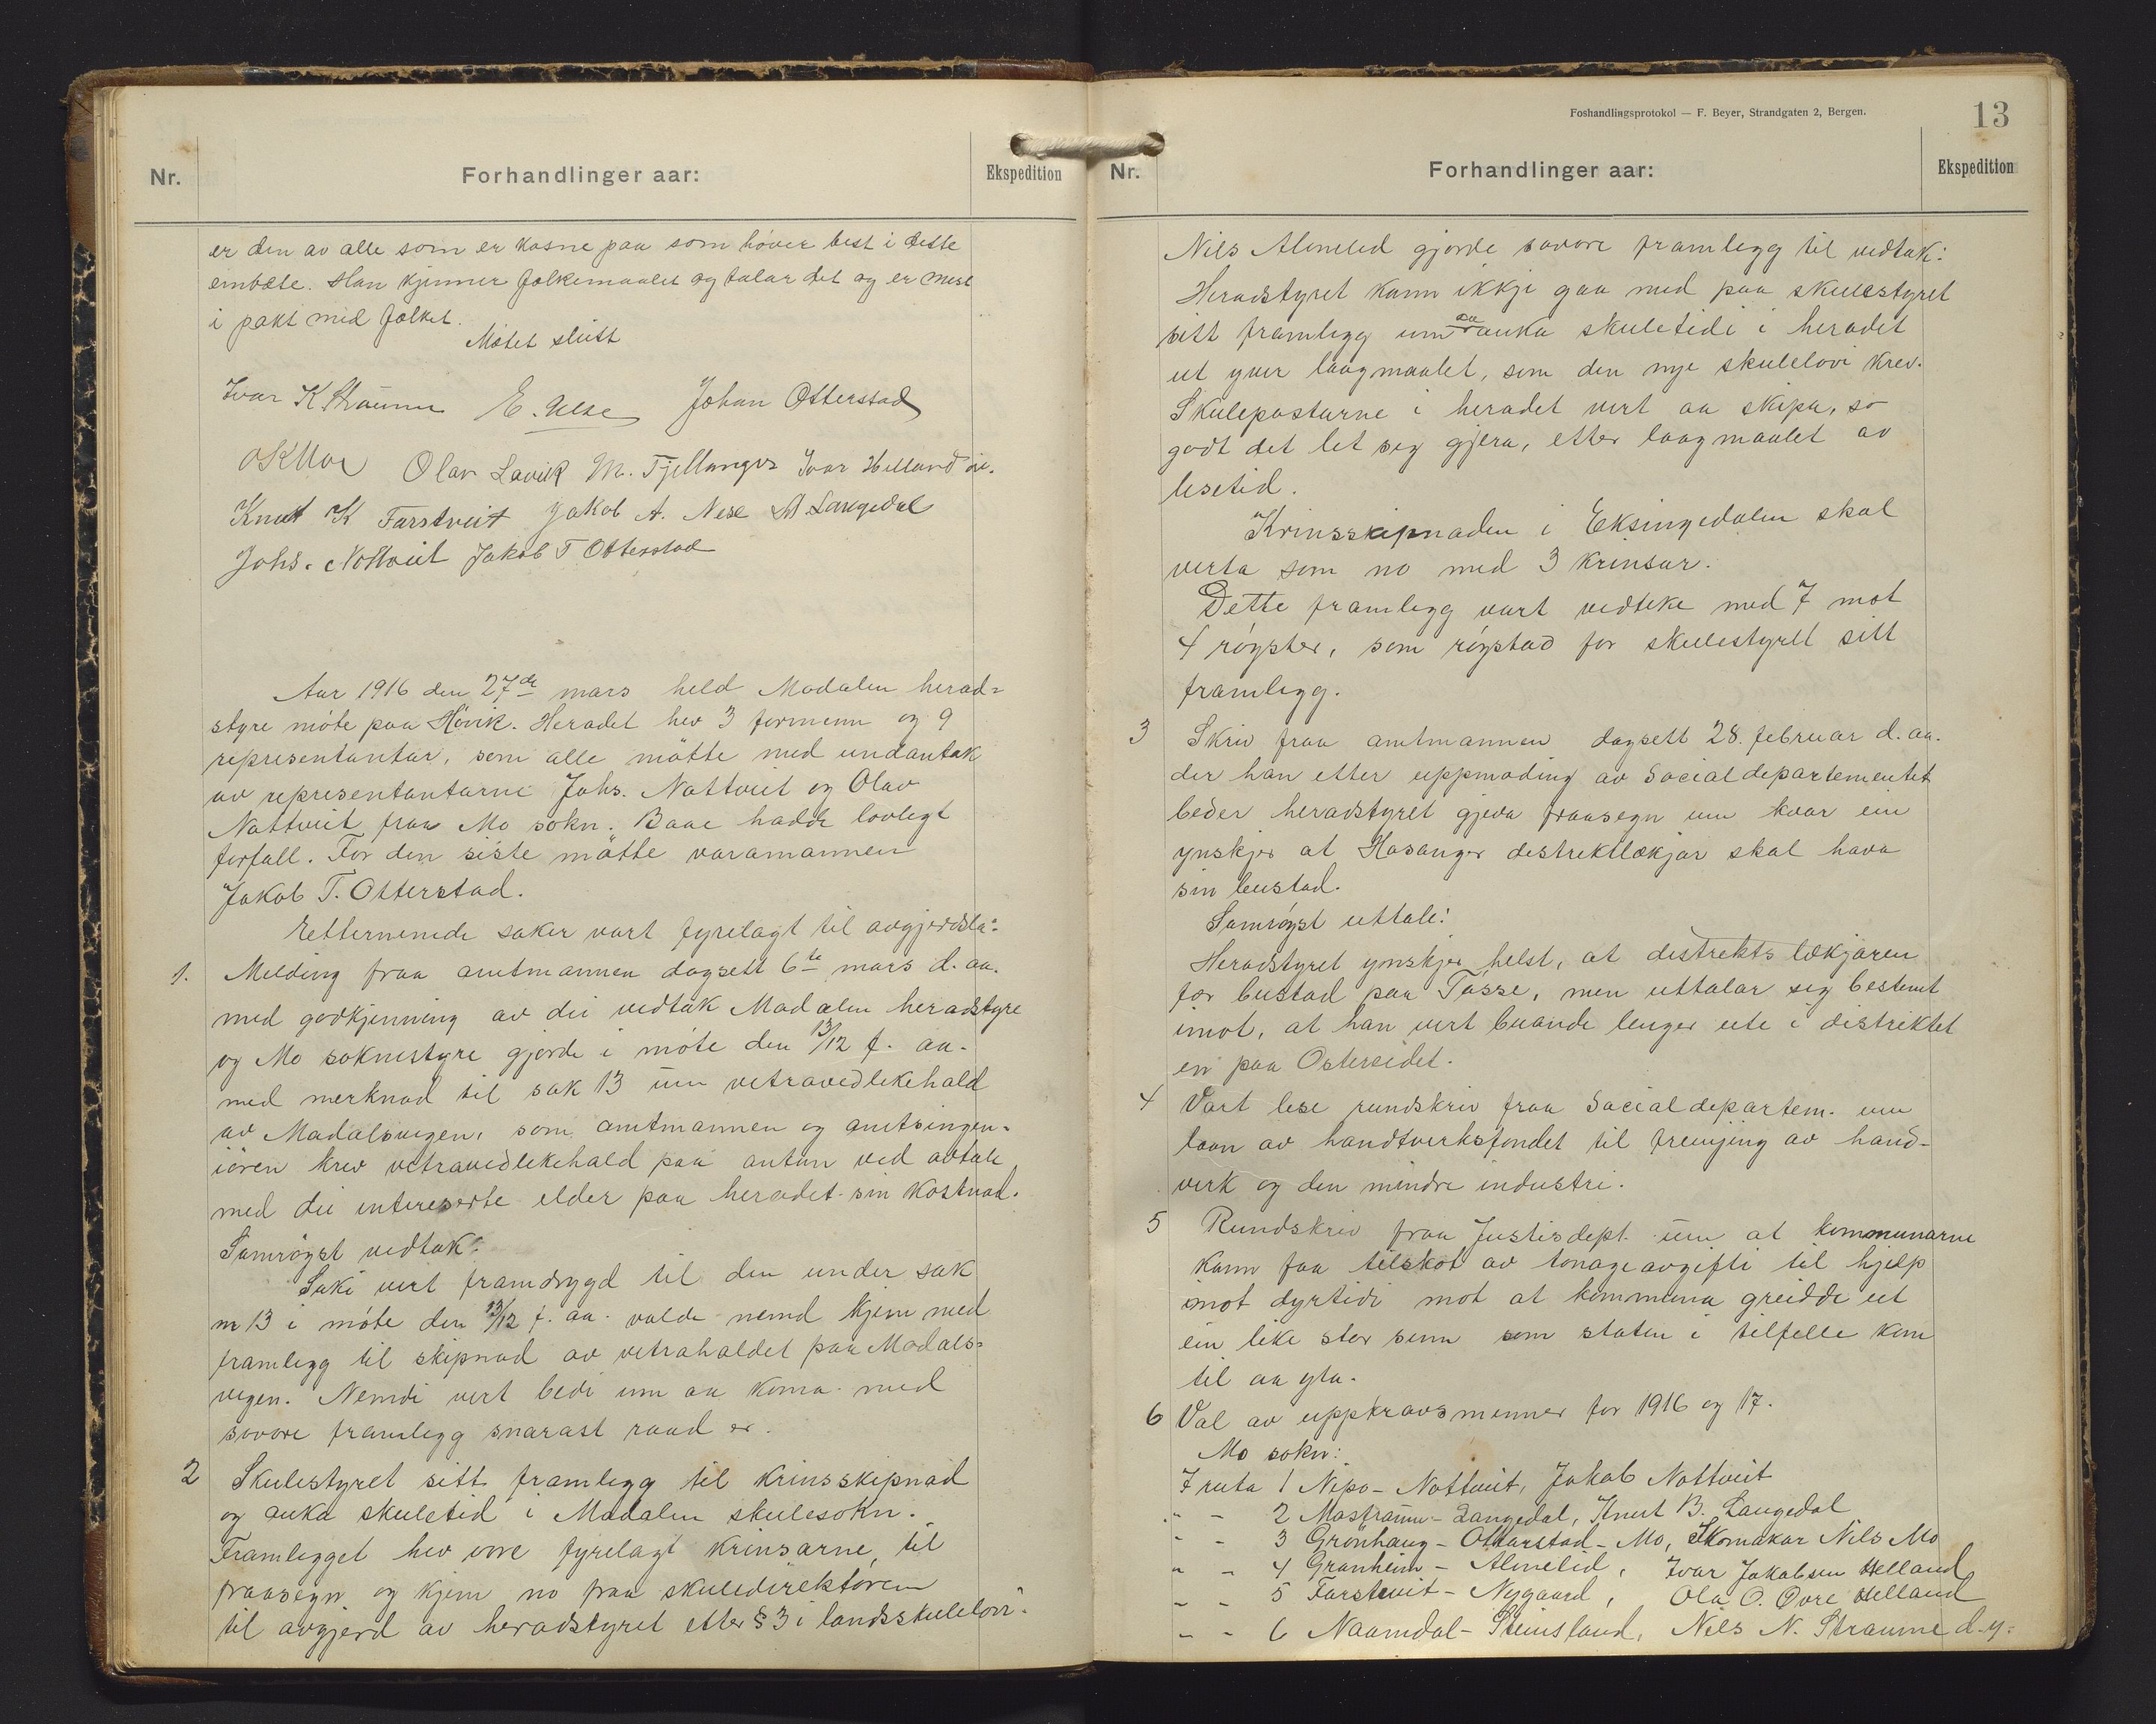 Nr.
Forhandlinger aar:
Ekspedition
er den av alle som er kosne paa som höver best i dette
embæte. Han kjenner folkemaalet og talar det og er mest
i pakt med folket.
Mötet slutt
Ivar K Straume E. Nese Johan Otterstad
O K Moe Olav Lavik M. Fjellanger Ivar Helland
Knut K Farstveit Jakob A. Nese A. Langedal
Johs. Nottveit Jakob T Otterstad
Aar 1916 den 27de mars held Modalen herad-
styre möte paa Hövik. Heradet hev 3 formenn og 9
representantar, som alle mötte med undantak
av representantarne Johs. Nottveit og Olav
Nottveit fraa Mo sokn. Baae hadde lovlegt
forfall. For den siste mötte varamannen
Jakob T. Otterstad.
Etternemnde saker vart fyrelagt til avgjerdsla:
1. Melding fraa amtmannen dagsett 6te mars d. aa.
med godkjenning av dei vedtak Modalen heradstyre
og Mo soknestyre gjorde i möte den 13/12 f. aa.
med merknad til sak 13 um vetravedlikehald
av Modalsvegen, som amtmannen og amtsingen-
iören krev vetravedlikehald paa anten ved avtale
med dei intereserte elder paa heradet sin kostnad.
Samröyst vedtak:
Saki vert framdrygd til den under sak
nr 13 i möte den 13/12 f. aa. valde nemd kjem med
framlegg til skipnad av vetrahaldet paa Modals-
vegen. Nemdi vert bedi um aa koma med
sovore framlegg snarast raad er.
2 Skulestyret sitt framlegg til krinsskipnad
og auka skuletid i Modalen skulesokn.
Framlegget hev vore fyrelagt krinsarne til
fraasegn og kjem no fraa skuledirektoren
til avgjerd av heradstyret etter § 3 i landsskulelovi.
Foshandlingsprotokol — F. Beyer, Strandgaten 2, Bergen.
13
Nr.
Forhandlinger aar:
Ekspedition
Nils Almelid gjorde sovore framlegg til vedtak:
Heradstyret kann ikkje gaa med paa skulestyret
sitt framlegg um aa auka skuletidi i heradet
ut yver laagmaalet, som den nye skulelovi krev.
Skulepostarne i heradet vert aa skipa, so
godt det let seg gjera, etter laagmaalet av
lesetid.
Krinsskipnaden i Eksingedalen skal
verta som no med 3 krinsar.
Dette framlegg vart vedteke med 7 mot
4 röyster, som röystad for skulestyret sitt
framlegg.
3 Skriv fraa amtmannen dagsett 28. februar d. aa.
der han etter uppmoding av Socialdepartementet
beder heradstyret gjeva fraasegn um kvar ein
ynskjer at Hosanger destriktlækjar skal hava
sin bustad.
Samröyst uttale:
Heradstyret ynskjer helst, at distrikts lækjaren
fær bustad paa Tösse, men uttalar seg bestemt
imot, at han vert buande lenger ute i distriktet
en paa Ostereidet.
4 Vart lese rundskriv fraa Socialdepartem. um
laan av handtverksfondet til fremjing av hand-
verk og den mindre industri.
5 Rundskriv fraa Justisdept. um at kommunarne
kann faa tilskot av tonageavgifti til hjelp
imot dyrtidi mot at kommuna greidde ut
ein like stor sum som staten i tilfelle kom
til aa yta.
6 Val av uppkravsmenner for 1916 og 17.
Mo sokn:
I ruta 1 Nipo - Nottveit, Jakob Nottveit
" - 2 Mostraum - Langedal, Knut B. Langedal
" - 3 Grönhaug - Otterstad - Mo, Skomakar Nils Mo
" - 4 Granheim - Almelid, Ivar Jakobsen Helland
" - 5 Farstveit - Nygaard, Ola O. Övre Helland
" - 6 Naamdal - Steinsland, Nils N. Straume d.y.